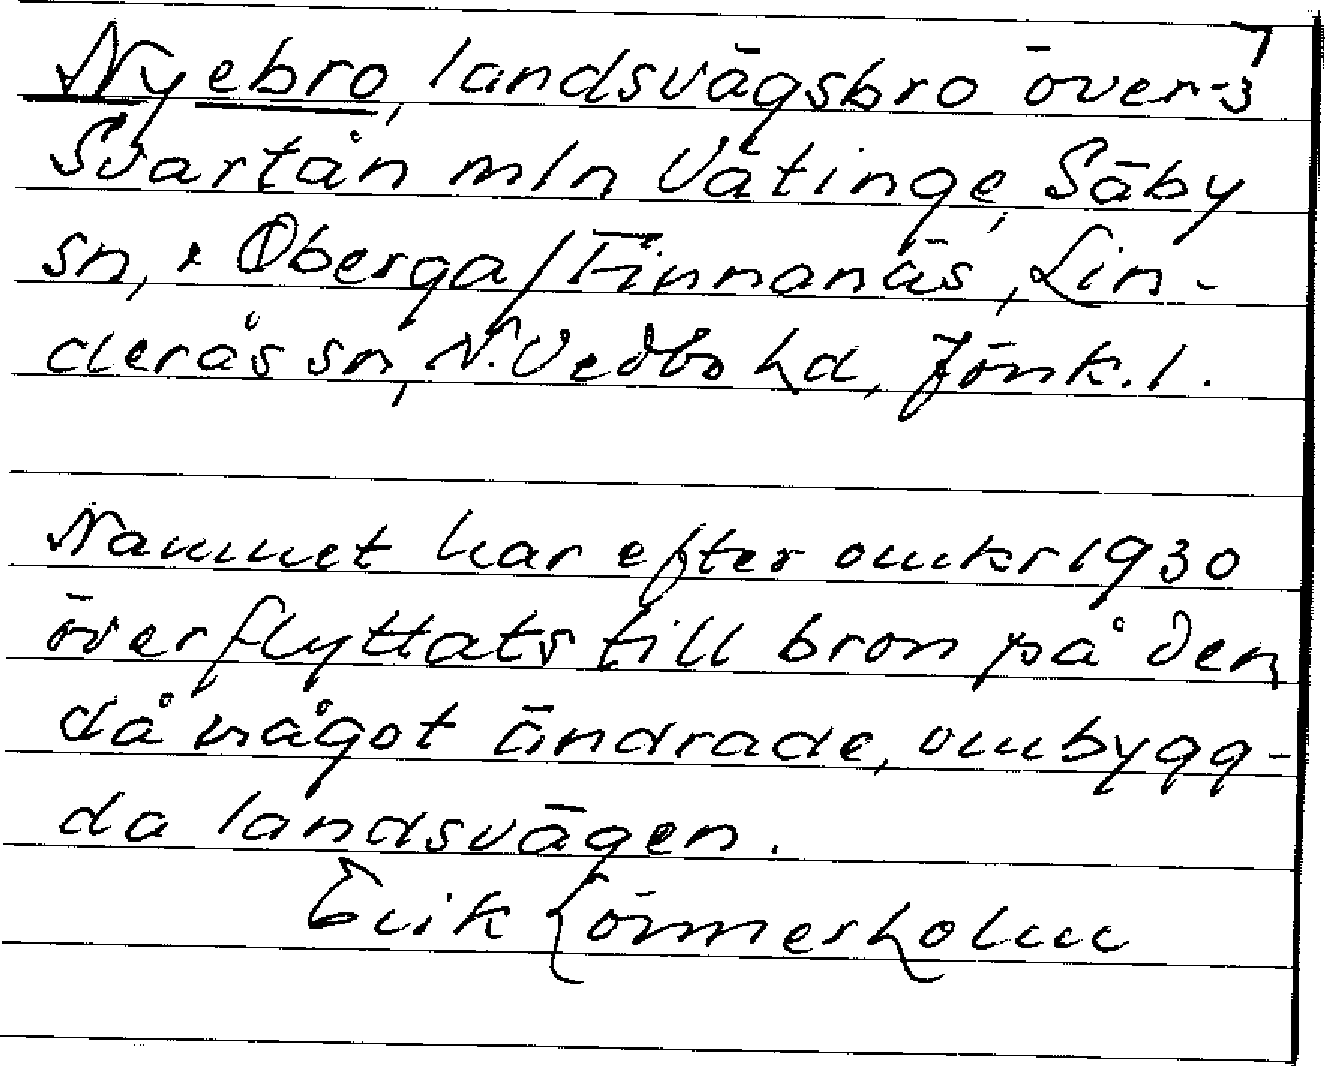 Nyebro, landsvägsbro över
Svartån mln Vätinge, Säby
sn, Oberga/Finnanäs, Lin-
derås sn, N. Vedbo hd, Jönk. l.
Namnet har efter omkr 1930
överflyttats till bron på den
då något ändrade, ombygg-
da landsvägen.
Erik